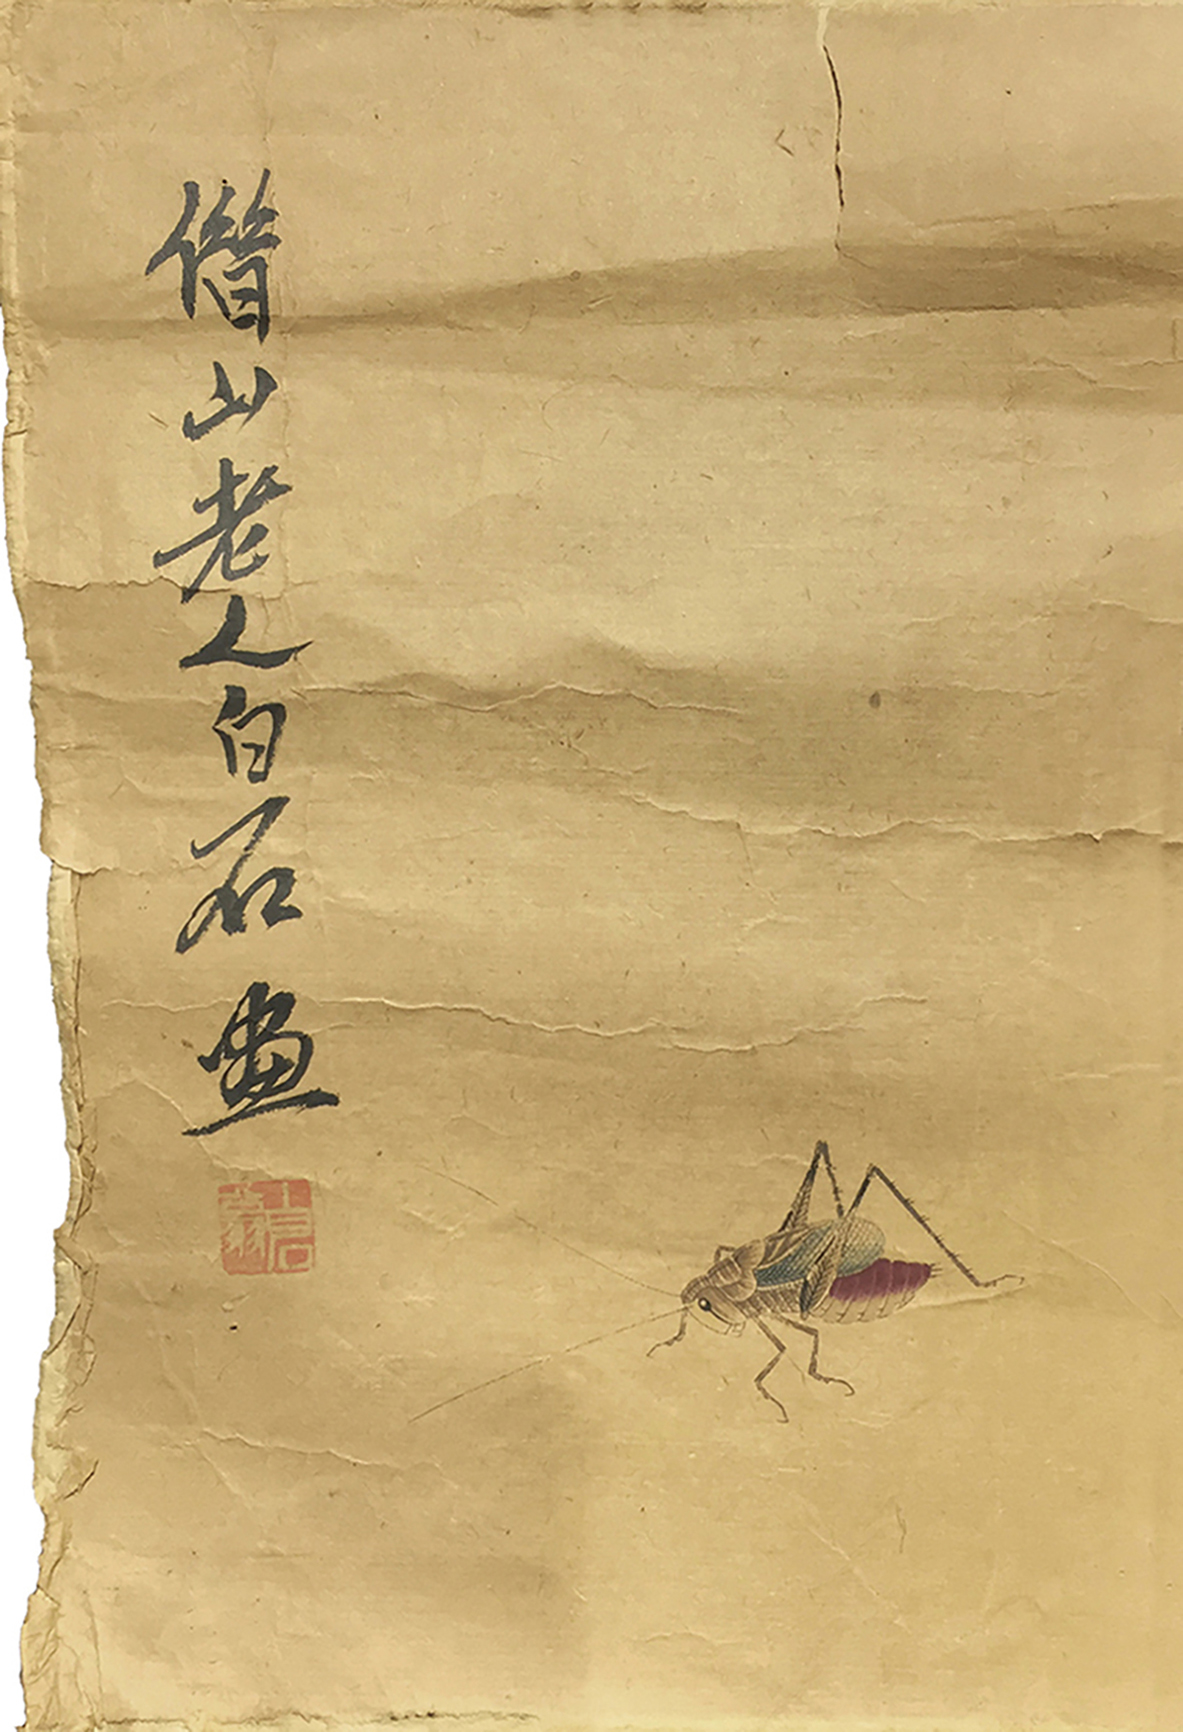 借山老人白石畫
白石翁